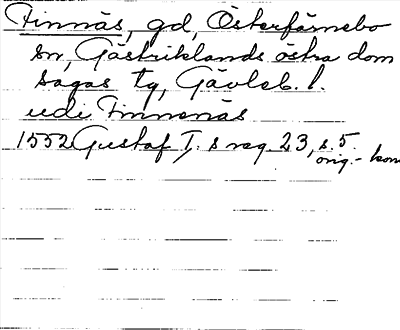 Finnäs, gd, Österfärnebo
sn, Gästriklands östra dom
sagas tg, Gävleb. l.
udi Finnenäs
1552 Gustaf I:s reg. 23, s. 5.
orig.- kon